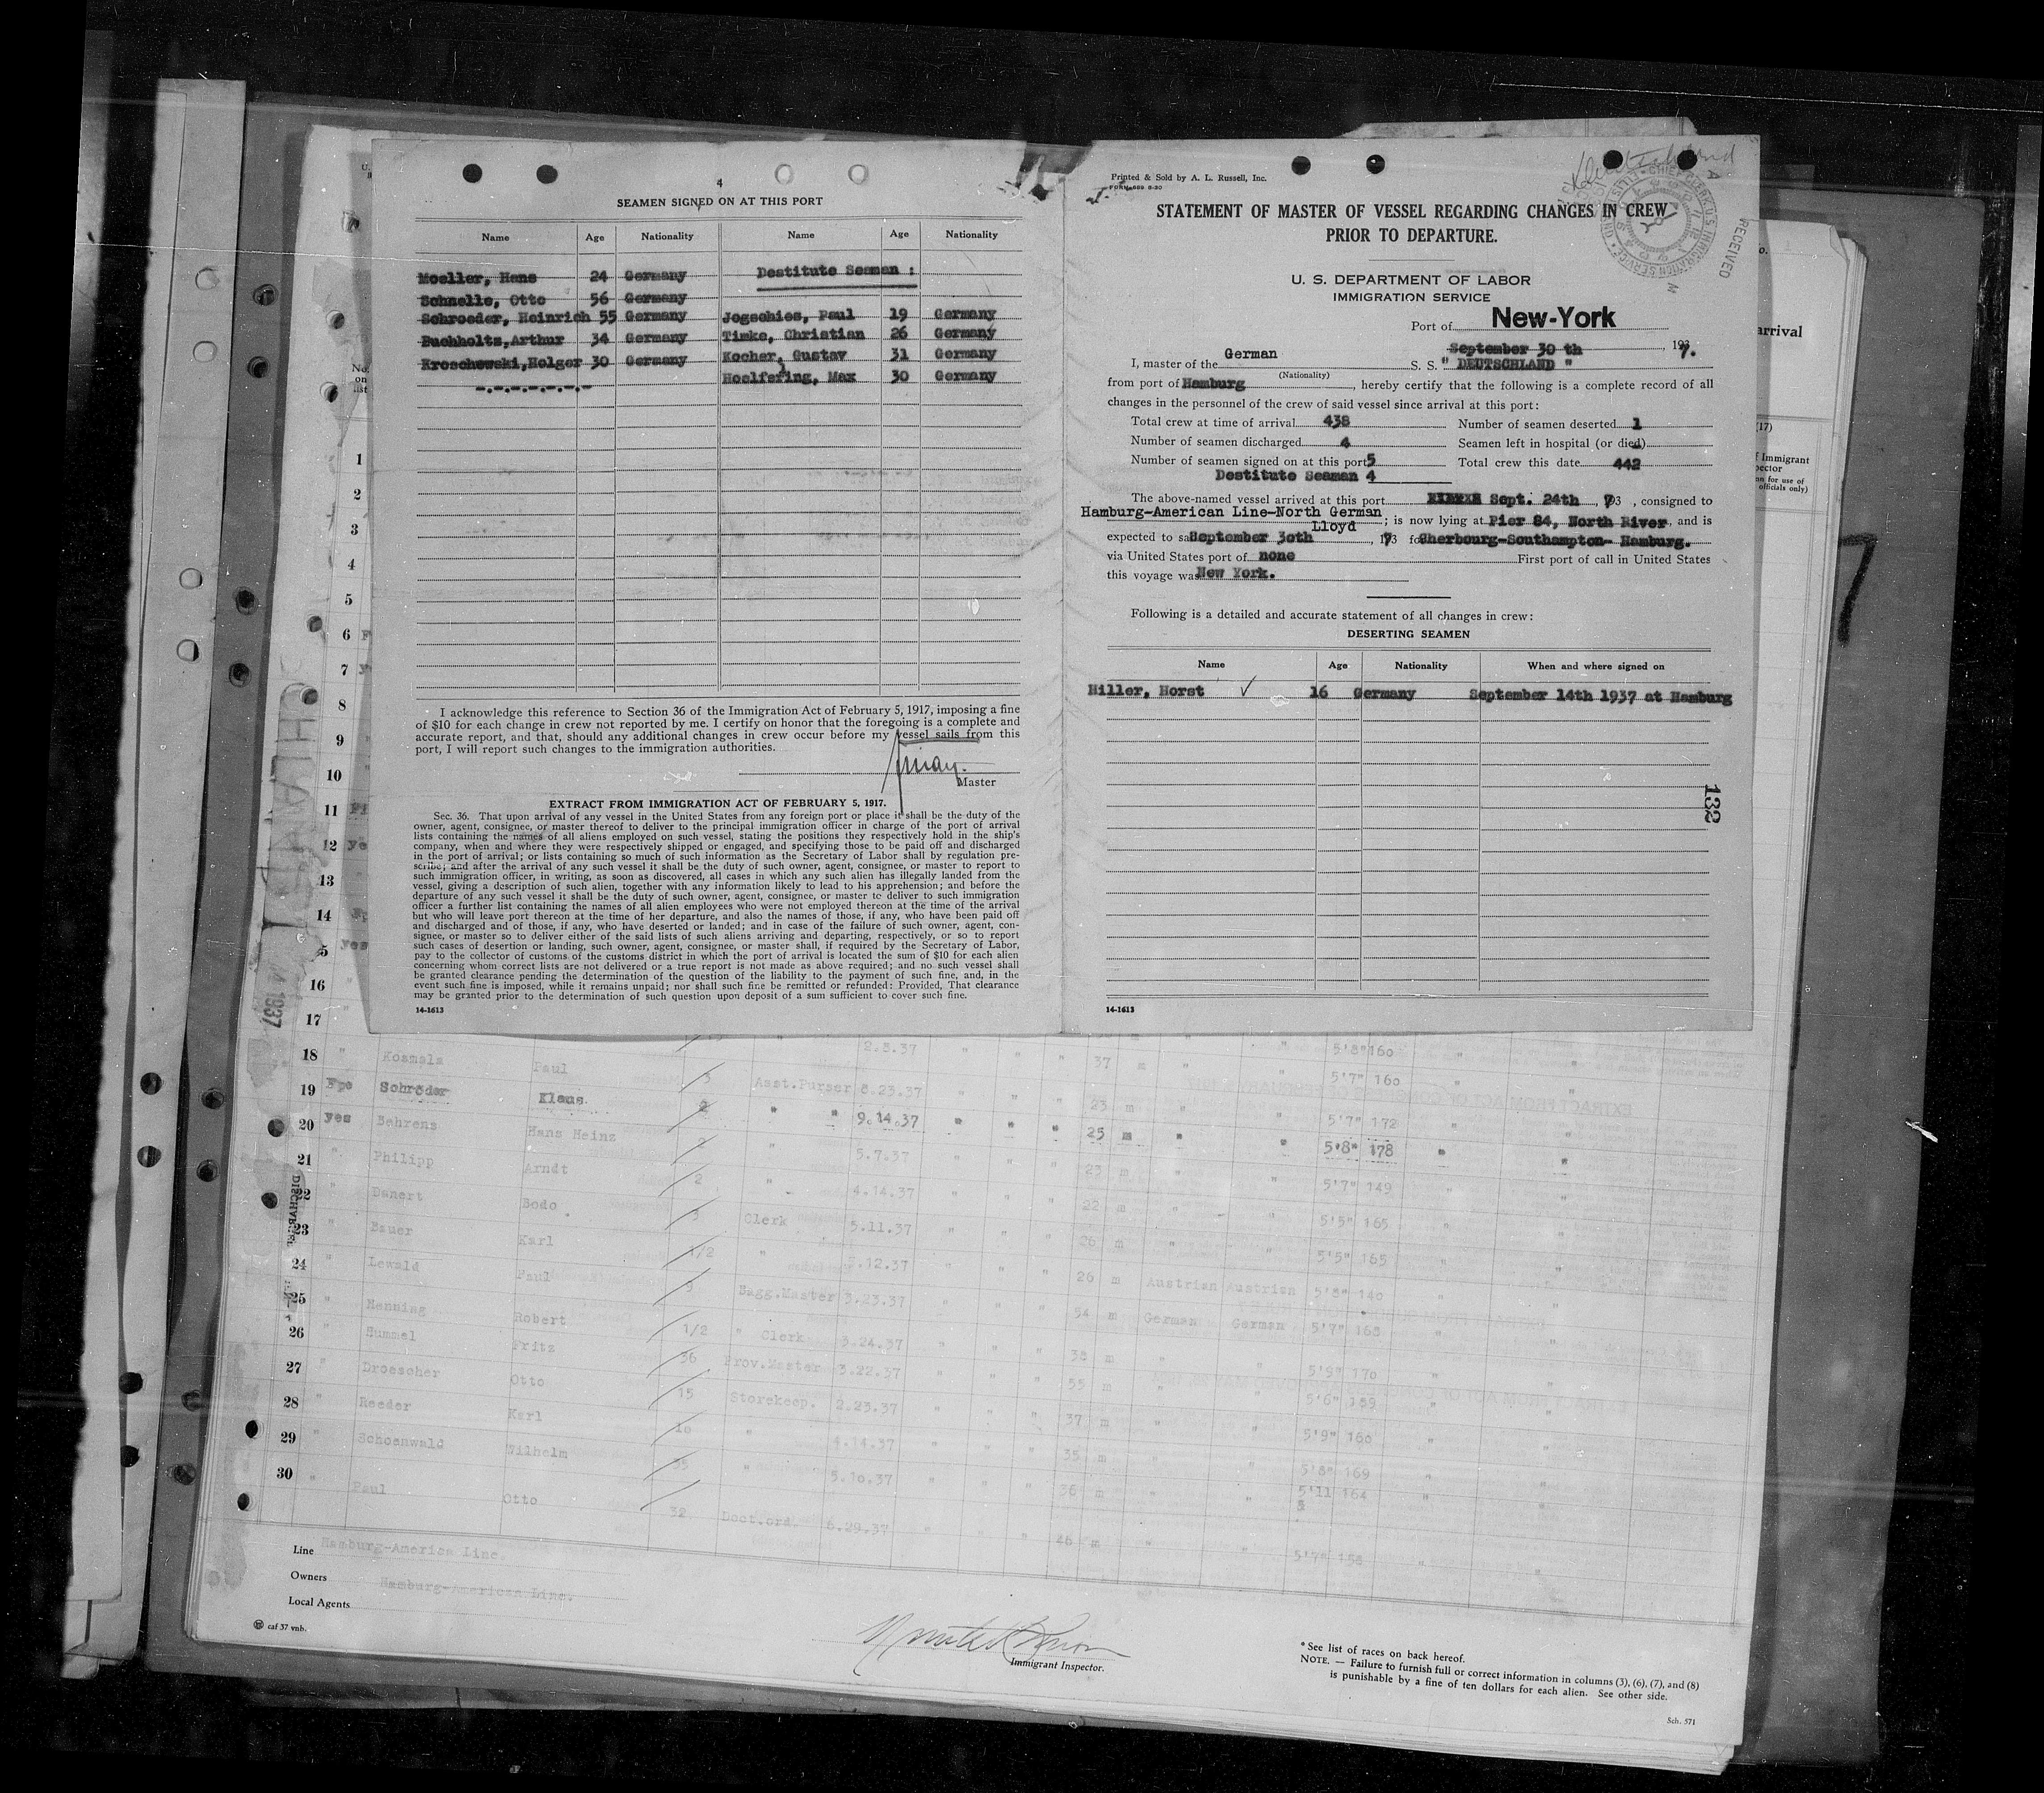 4
SEAMEN SIGNED ON AT THIS PORT
Name Age Nationality Name Age Nationality
Moeller, Hans 24 Germany Destitute Seaman :
Schnelle, Otto 56 Germany
Schroeder, Heinrich 55 Germany Jogschies, Paul 19 Germany
Buchholtz,Arthur 34 Germany Timke, Christian 26 Germany
Kroschewski,Holger 30 Germany Kocher, Gustav 31 Germany
-.-.-.-.-.-.- Hoelfering, Max 30 Germany
I acknowledge this reference to Section 36 of the Immigration Act of February 5, 1917, imposing a fine
of $10 for each change in crew not reported by me. I certify on honor that the foregoing is a complete and
accurate report, and that, should any additional changes in crew occur before my vessel sails from this
port, I will report such changes to the immigration authorities.
Master
EXTRACT FROM IMMIGRATION ACT OF FEBRUARY 5, 1917.
Sec. 36. That upon arrival of any vessel in the United States from any foreign port or place it shall be the duty of the
owner, agent, consignee, or master thereof to deliver to the principal immigration officer in charge of the port of arrival
lists containing the names of all aliens employed on such vessel, stating the positions they respectively hold in the ship's
company, when and where they were respectively shipped or engaged, and specifying those to be paid off and discharged
in the port of arrival; or lists containing so much of such information as the Secretary of Labor shall by regulation pre-
scribe; and after the arrival of any such vessel it shall be the duty of such owner, agent, consignee, or master to report to
such immigration officer, in writing, as soon as discovered, all cases in which any such alien has illegally landed from the
vessel, giving a description of such alien, together with any information likely to lead to his apprehension; and before the
departure of any such vessel it shall be the duty of such owner, agent, consignee, or master to deliver to such immigration
officer a further list containing the names of all alien employees who were not employed thereon at the time of the arrival
but who will leave port thereon at the time of her departure, and also the names of those, if any, who have been paid off
and discharged and of those, if any, who have deserted or landed; and in case of the failure of such owner, agent, con-
signee, or master so to deliver either of the said lists of such aliens arriving and departing, respectively, or so to report
such cases of desertion or landing, such owner, agent, consignee, or master shall, if required by the Secretary of Labor,
pay to the collector of customs of the customs district in which the port of arrival is located the sum of $10 for each alien
concerning whom correct lists are not delivered or a true report is not made as above required; and no such vessel shall
be granted clearance pending the determination of the question of the liability to the payment of such fine, and, in the
event such fine is imposed, while it remains unpaid; nor shall such fine be remitted or refunded: Provided, That clearance
may be granted prior to the determination of such question upon deposit of a sum sufficient to cover such fine.
14-1613
Printed & Sold by A. L. Russell, Inc.
FORM 689 8-30
STATEMENT OF MASTER OF VESSEL REGARDING CHANGES IN CREW
PRIOR TO DEPARTURE.
RECEIVED
U. S. DEPARTMENT OF LABOR
IMMIGRATION SERVICE
Port of New-York
September 30 th , 1937.
I, master of the German S. S. " DEUTSCHLAND "
(Nationality)
from port of Hamburg , hereby certify that the following is a complete record of all
changes in the personnel of the crew of said vessel since arrival at this port:
Total crew at time of arrival 438 Number of seamen deserted 1
Number of seamen discharged 4 Seamen left in hospital (or died)
Number of seamen signed on at this port 5 Total crew this date 442
Destitute Seaman 4
The above-named vessel arrived at this port Sept. 24th , 193 7 , consigned to
Hamburg-American Line-North German
Lloyd ; is now lying at Pier 84, North River , and is
expected to sail September 30th , 193 7 for Cherbourg-Southampton- Hamburg.
via United States port of none First port of call in United States
this voyage was New York.
Following is a detailed and accurate statement of all changes in crew:
DESERTING SEAMEN
Name Age Nationality When and where signed on
Hiller, Horst ✓ 16 Germany September 14th 1937 at Hamburg
132
14-1613
arrival
(17)
1
2
3
4
5
6
7
8
9
10
11
12 ye
13
14
15 yes
16
17
18 " Kosmala Paul 3 Asst.Purser 8.23.37 " " " 37 m " " 5'7" 160
19 Fpc Schröder Klaus 2 " " 9.14.37 " " " 23 m " " 5'7" 172
20 yes Behrens Hans Heinz 2 " 5.7.37 " " " 25 m " " 5'8" 178
21 " Philipp Arndt 2 " 4.14.37 " " " 23 m " " 5'7" 149
22 " Danert Bodo 3 Clerk 5.11.37 " " " 22 m " " 5'5" 165
23 " Bauer Karl 1/2 " 5.12.37 " " " 26 m " " 5'5" 165
24 " Lewald Paul 9 Bagg.Master 3.23.37 " " " 26 m Austrian Austrian 5'8" 140
25 " Henning Robert 1/2 " Clerk 3.24.37 " " " 54 m German German 5'7" 163
26 " Hummel Fritz 36 Prov.Master 3.22.37 " " " 38 m " " 5'9" 170
27 " Droescher Otto 15 Storekeep. 2.23.37 " " " 55 m " " 5'6" 159
28 " Reeder Karl 16 " 4.14.37 " " " 37 m " " 5'9" 160
29 " Schoenwald Wilhelm 35 " 5.10.37 " " " 35 m " " 5'8" 169
30 " Paul Otto 32 36 m 5'11 164
46 m 5'7" 158
Line Hamburg-America Line.
Owners Hamburg-American Line.
Local Agents
caf 37 vnb.
Immigrant Inspector.
* See list of races on back hereof.
NOTE. — Failure to furnish full or correct information in columns (3), (6), (7), and (8)
is punishable by a fine of ten dollars for each alien. See other side.
Sch. 571